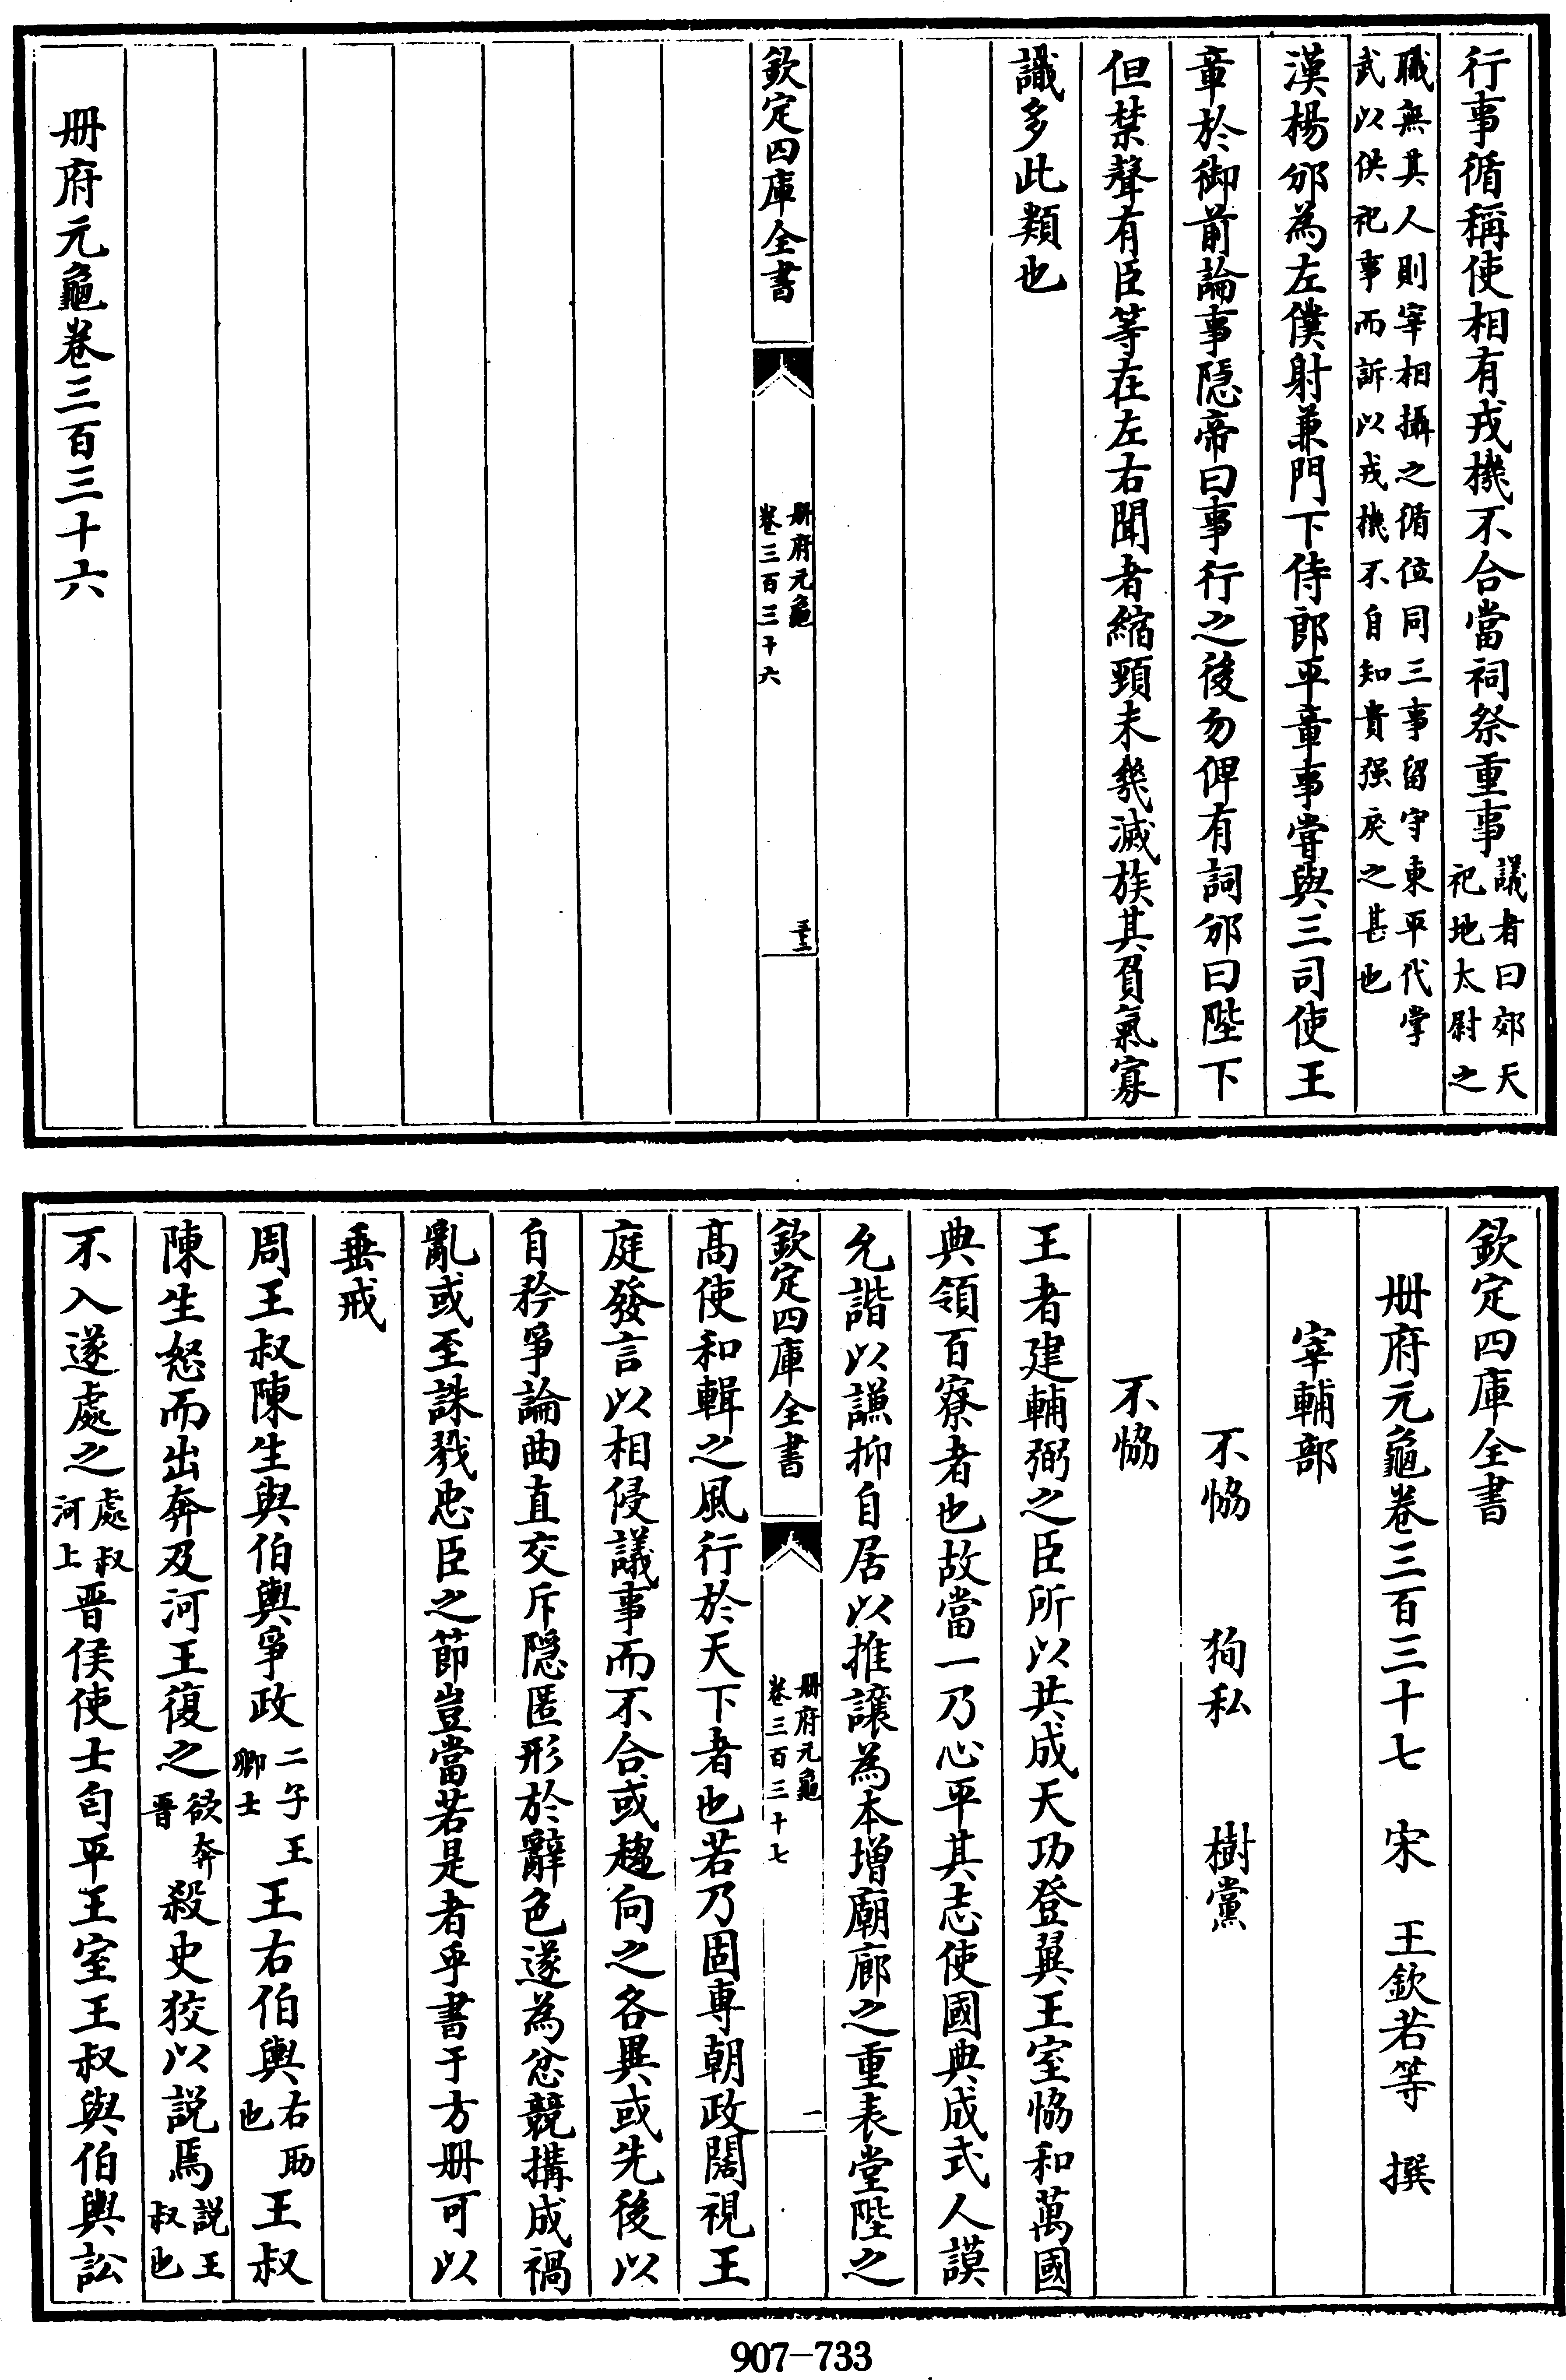 行事循稱使相有戎機不合當祠祭重事議者曰郊天祀地太尉之
職無其人則宰相攝之循位同三事留守東平代掌
武以供祀事而訴以戎機不自知貴强戾之甚也
漢楊邠為左僕射兼門下侍郎平章事嘗與三司使王
章於御前論事隠帝曰事行之後勿俾有詞邠曰陛下
但禁聲有臣等在左右聞者縮頸未幾滅族其負氣寡
識多此類也
欽定四庫全書
册府元龜
卷三百三十六
册府元龜卷三百三十六
欽定四庫全書
册府元龜卷三百三十七 宋 王欽若等 撰
宰輔部
不恊 狥私 樹黨
不恊
王者建輔弼之臣所以共成天功登翼王室恊和萬國
典領百寮者也故當一乃心平其志使國典成式人謨
允諧以謙抑自居以推讓為本增廟廊之重表堂陛之
欽定四庫全書
册府元龜
卷三百三十七
一
高使和輯之風行於天下者也若乃固專朝政闊視王
庭發言以相侵議事而不合或趨向之各異或先後以
自矜爭論曲直交斥隠匿形於辭色遂為忿競搆成禍
亂或至誅戮忠臣之節豈當若是者乎書于方册可以
垂戒
周王叔陳生與伯輿爭政二子王卿士王右伯輿右助也王叔
陳生怒而出奔及河王復之欲奔晋殺史狡以説焉説王叔也
不入遂處之處叔河上晋侯使士匄平王室王叔與伯輿訟
907-733